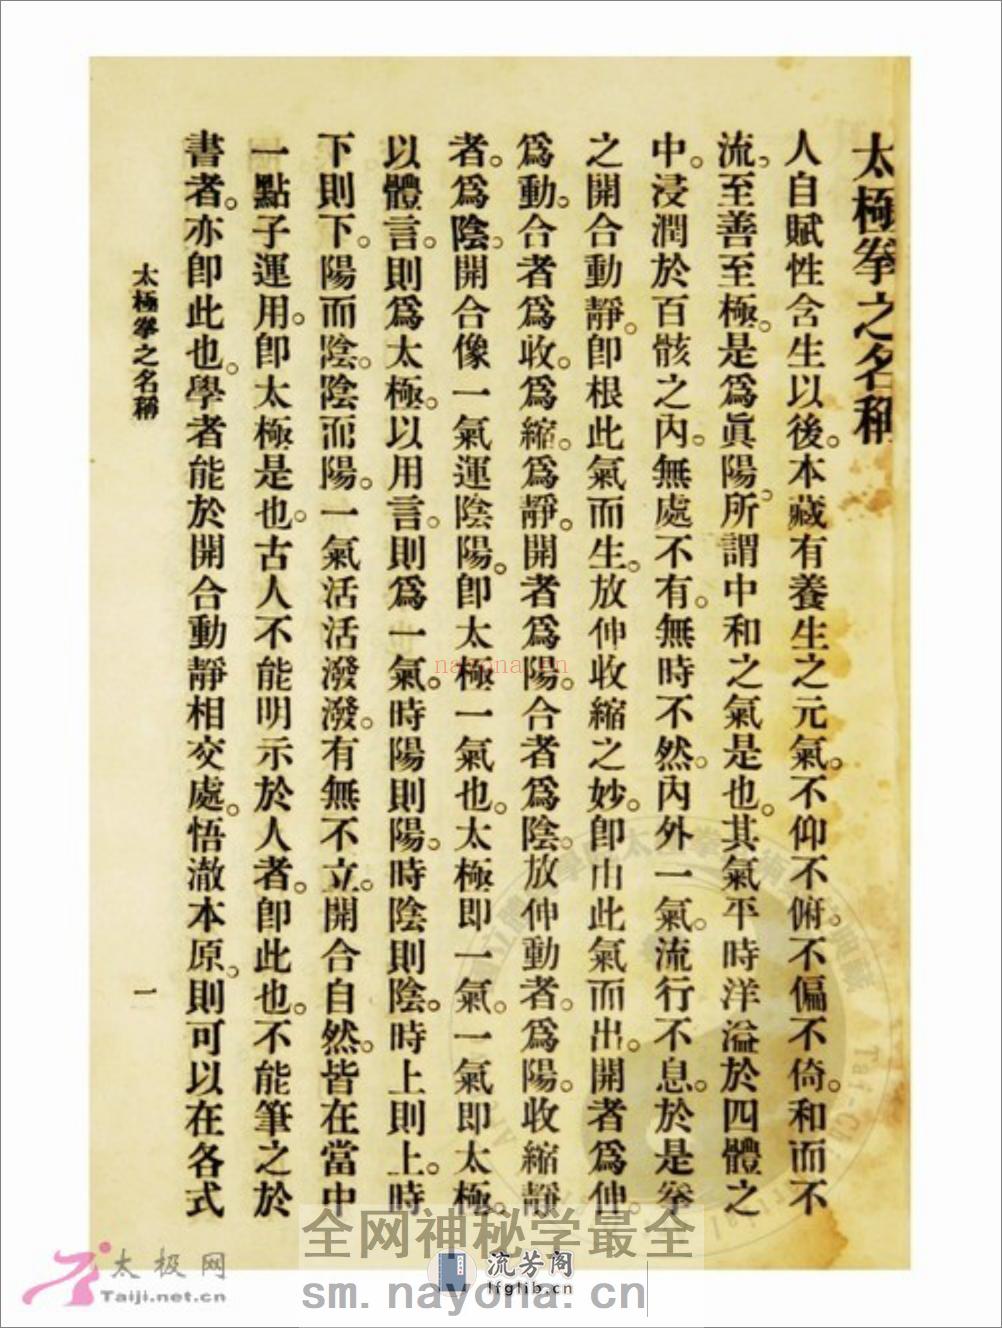 太極拳之名稱
人自賦性含生以後。本藏有養生之元氣。不仰不俯。不偏不倚。和而不
流。至善至極。是爲眞陽。所謂中和之氣是也。其氣平時洋溢於四體之
中。浸潤於百骸之內。無處不有。無時不然。內外一氣。流行不息。於是拳
之開合動靜。卽根此氣而生。放伸收縮之妙。卽由此氣而出。開者爲伸。
爲動。合者爲收。爲縮。爲靜。開者爲陽。合者爲陰。放伸動者。爲陽。收縮靜
者。爲陰。開合像一氣運陰陽。卽太極一氣也。太極即一氣。一氣即太極。
以體言。則爲太極。以用言。則爲一氣。時陽則陽。時陰則陰。時上則上。時
下則下。陽而陰。陰而陽。一氣活活潑潑。有無不立。開合自然。皆在當中
一點子運用。卽太極是也。古人不能明示於人者。卽此也。不能筆之於
書者。亦卽此也。學者能於開合動靜相交處。悟澈本原。則可以在各式
太極拳之名稱
一
nayona.cn
太极网
Taiji.net.cn
全网神秘学最全
流芳阁
lfglib.cn
sm.nayona.cn